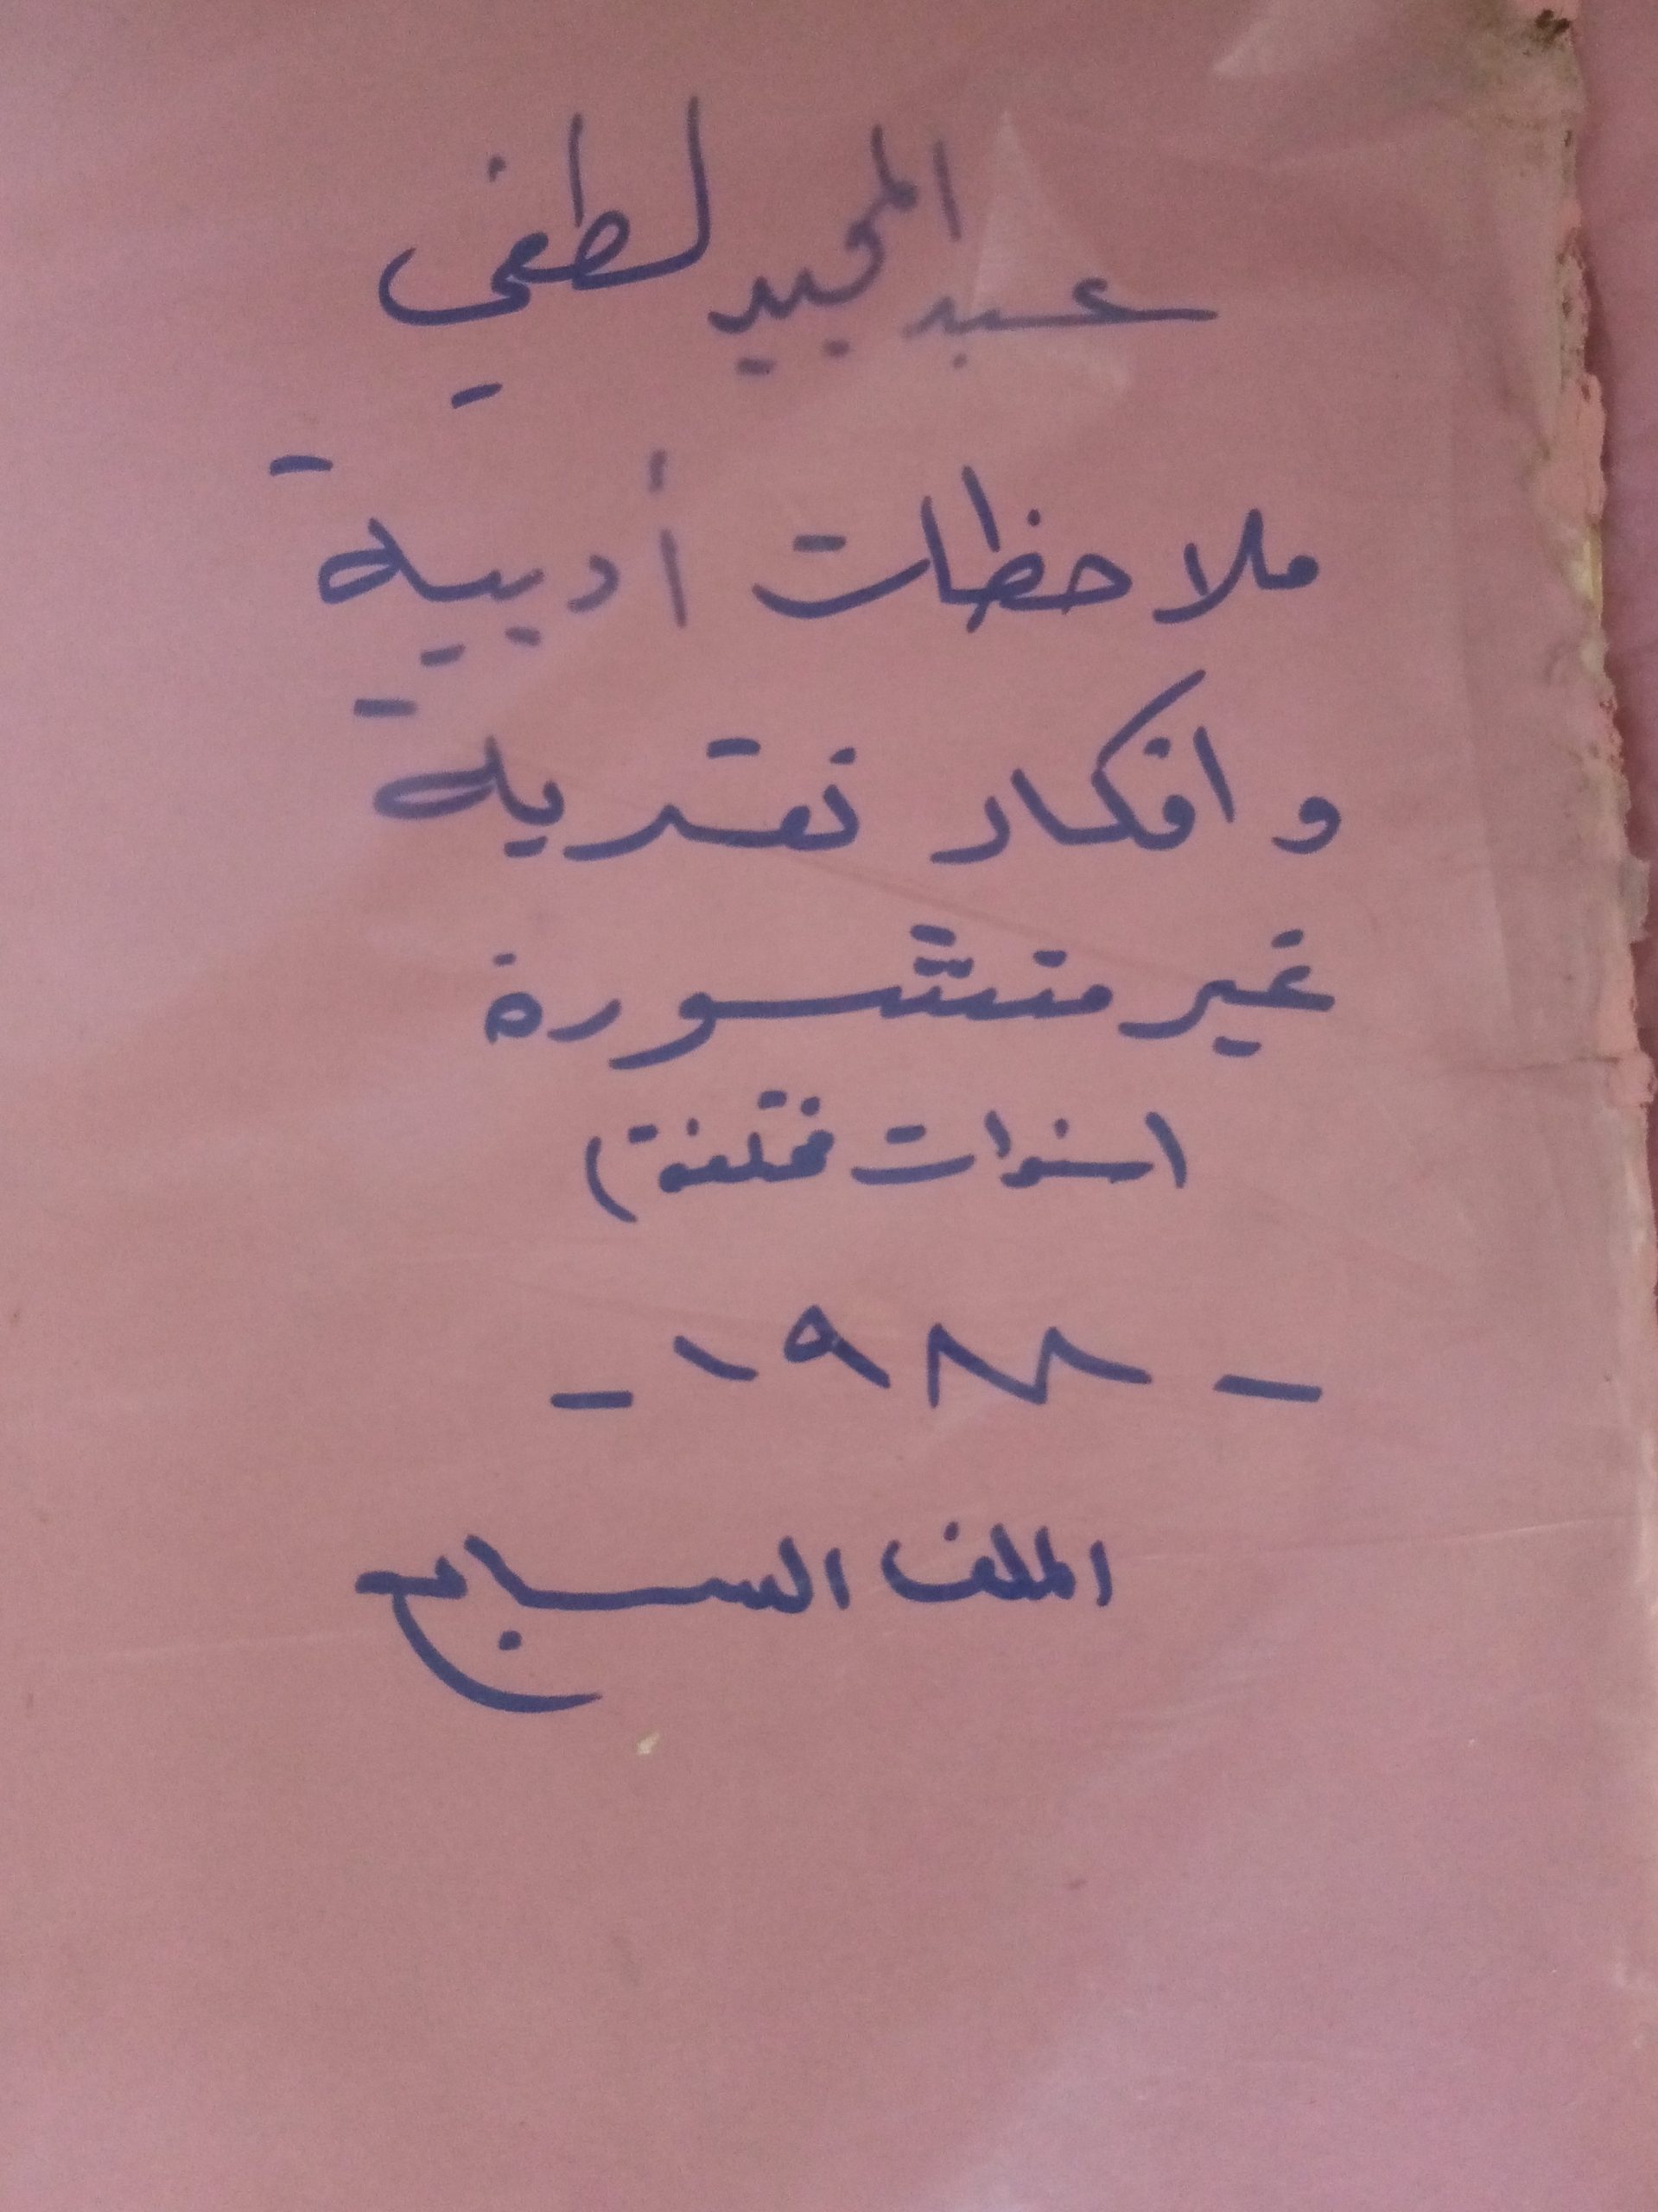 عبد المجيد لطفي
ملاحظات أدبية
وافكار نقدية
غير منشورة
(سنوات مختلفة)
- ١٩٨٨ -
الملف السابع